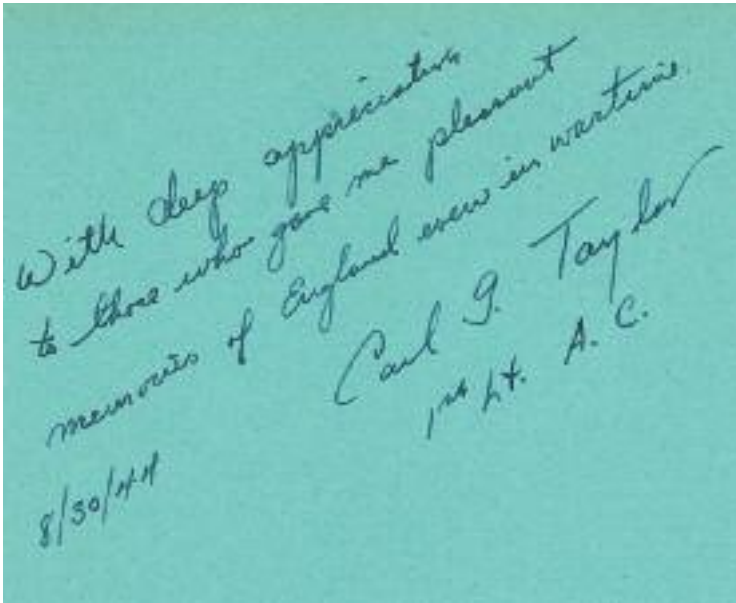 With deep appreciation
to those who gave me pleasant
memories of England even in wartime.
Carl G. Taylor
1st Lt. A. C.
8/30/44